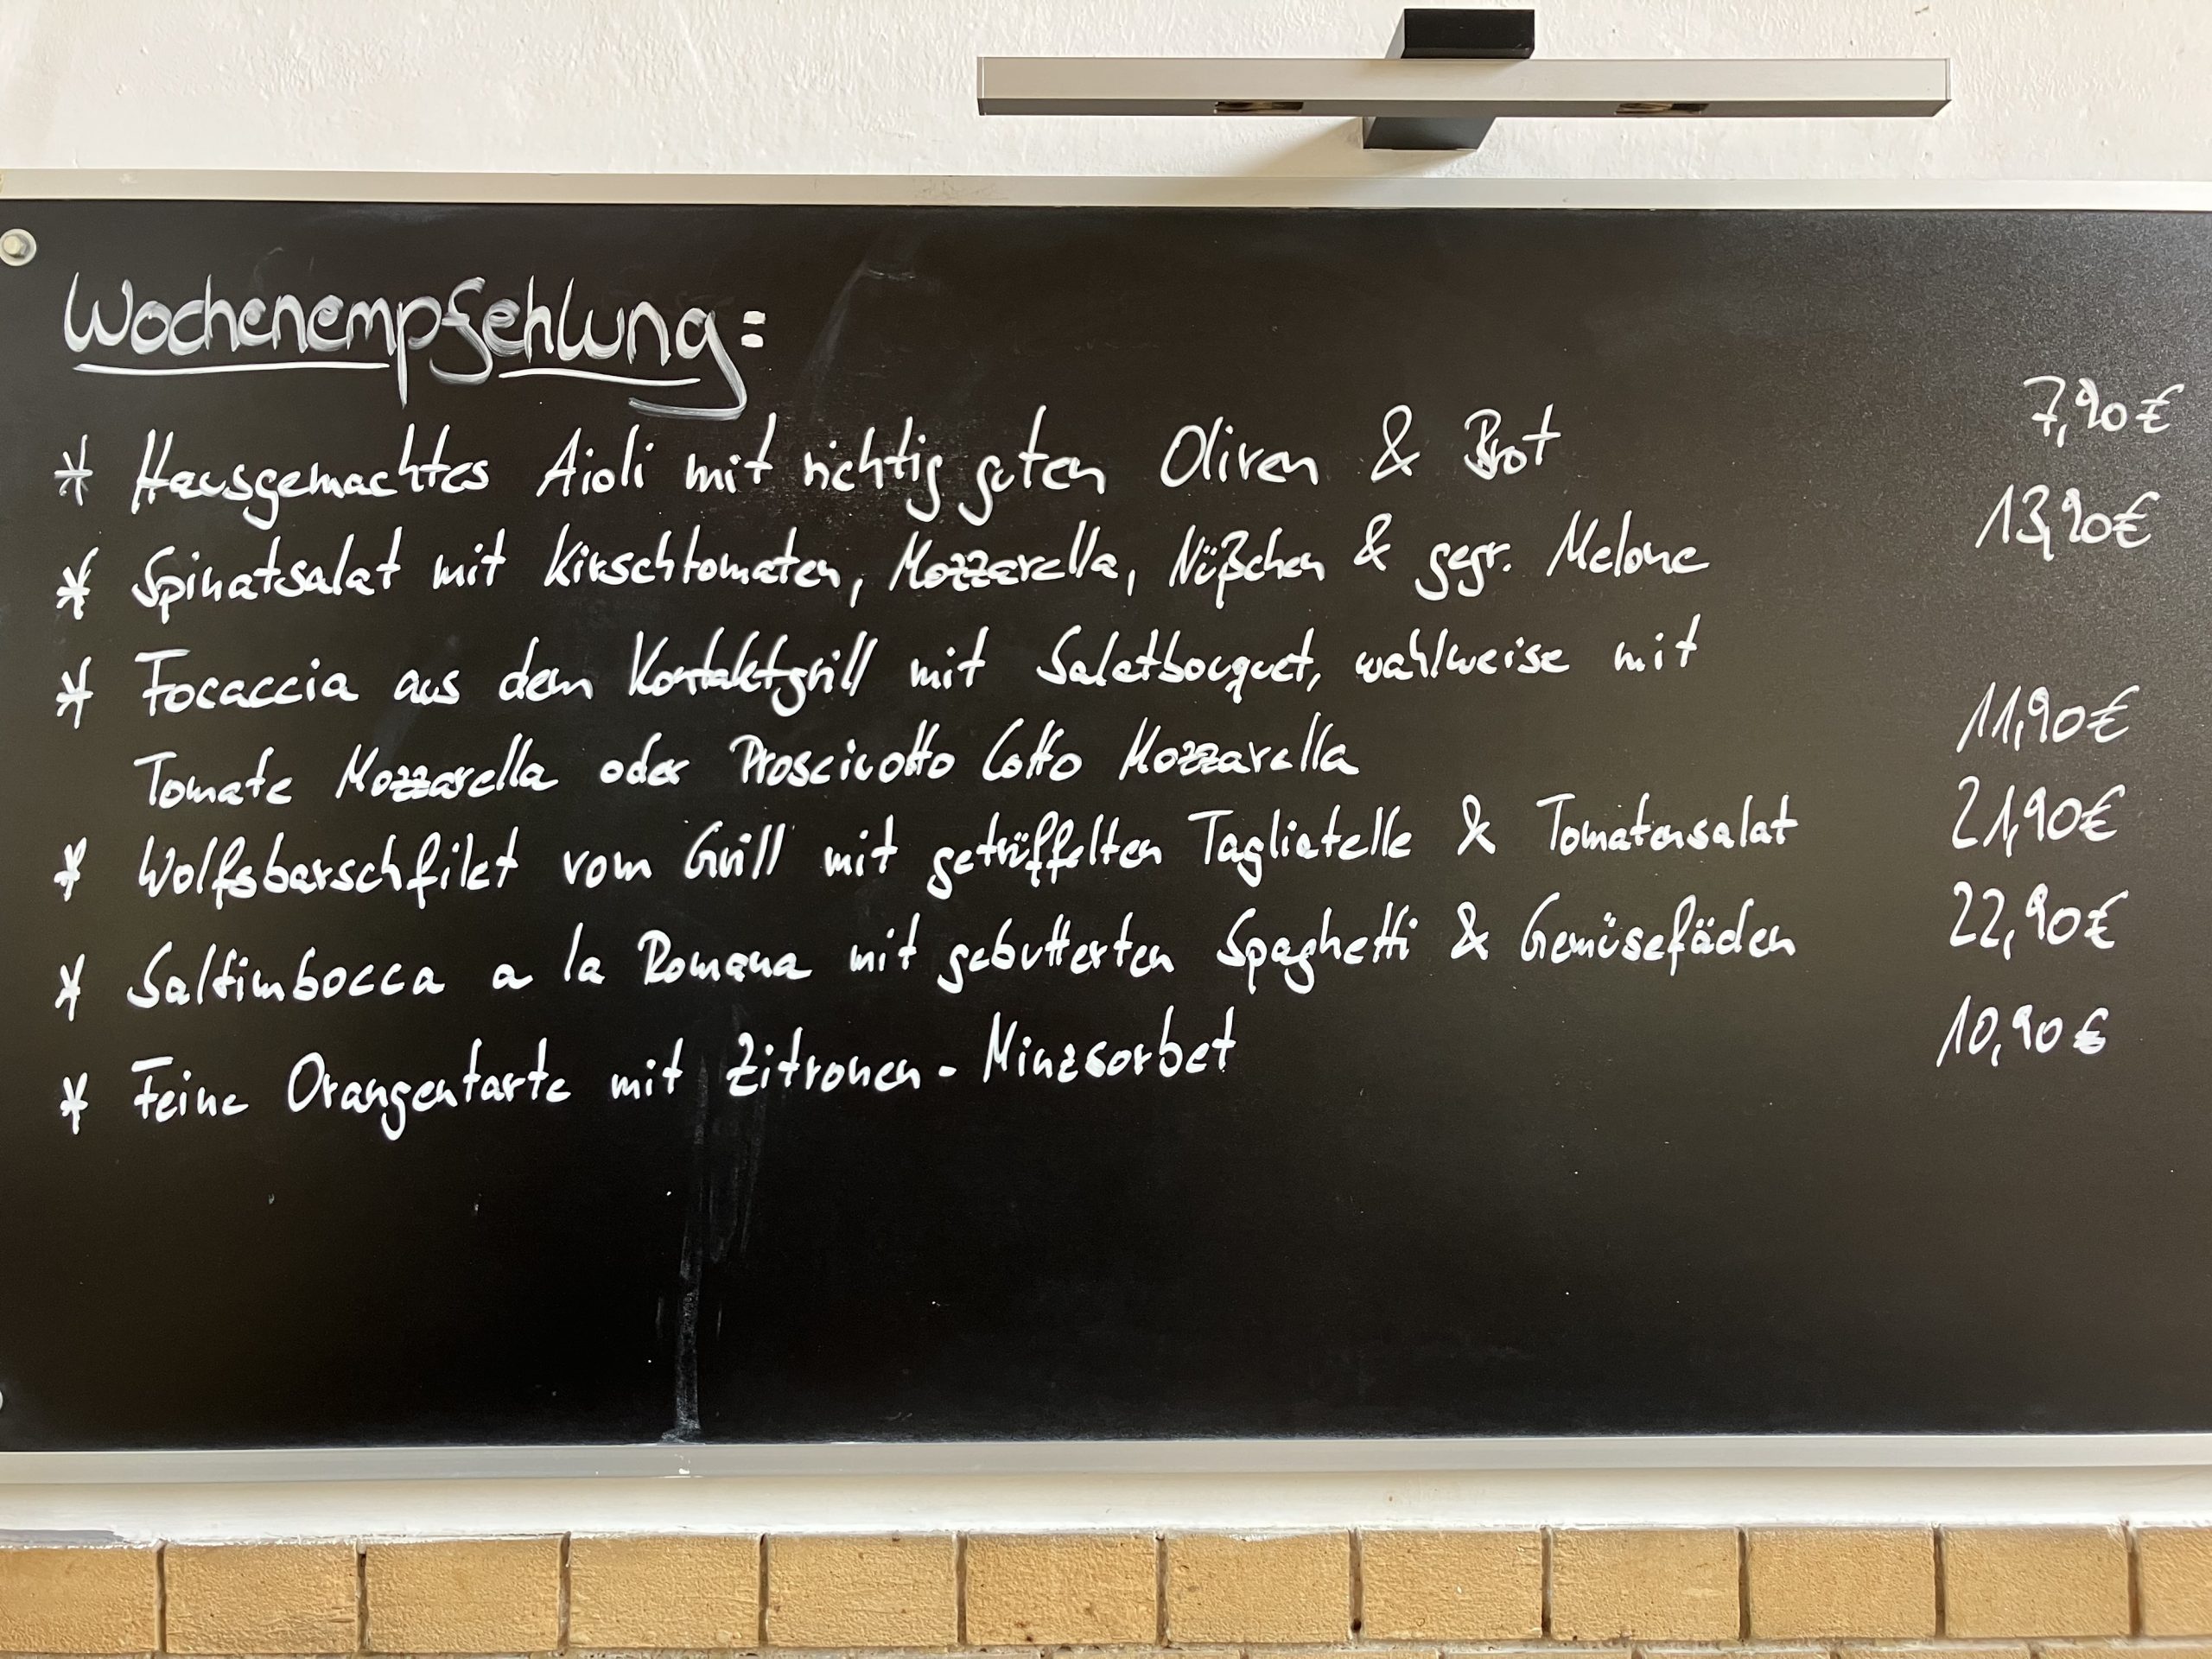 Wochenempfehlung:
* Hausgemachtes Aioli mit richtig guten Oliven & Brot 7,90€
* Spinatsalat mit Kirschtomaten, Mozzarella, Nüßchen & gegr. Melone 13,90€
* Focaccia aus dem Kontaktgrill mit Salatbouquet, wahlweise mit
Tomate Mozzarella oder Prosciuotto Cotto Mozzarella 11,90€
* Wolfsbarschfilet vom Grill mit getrüffelten Tagliatelle & Tomatensalat 21,90€
* Saltimbocca a la Romana mit gebutterten Spaghetti & Gemüsefäden 22,90€
* Feine Orangentarte mit Zitronen-Minzsorbet 10,90€